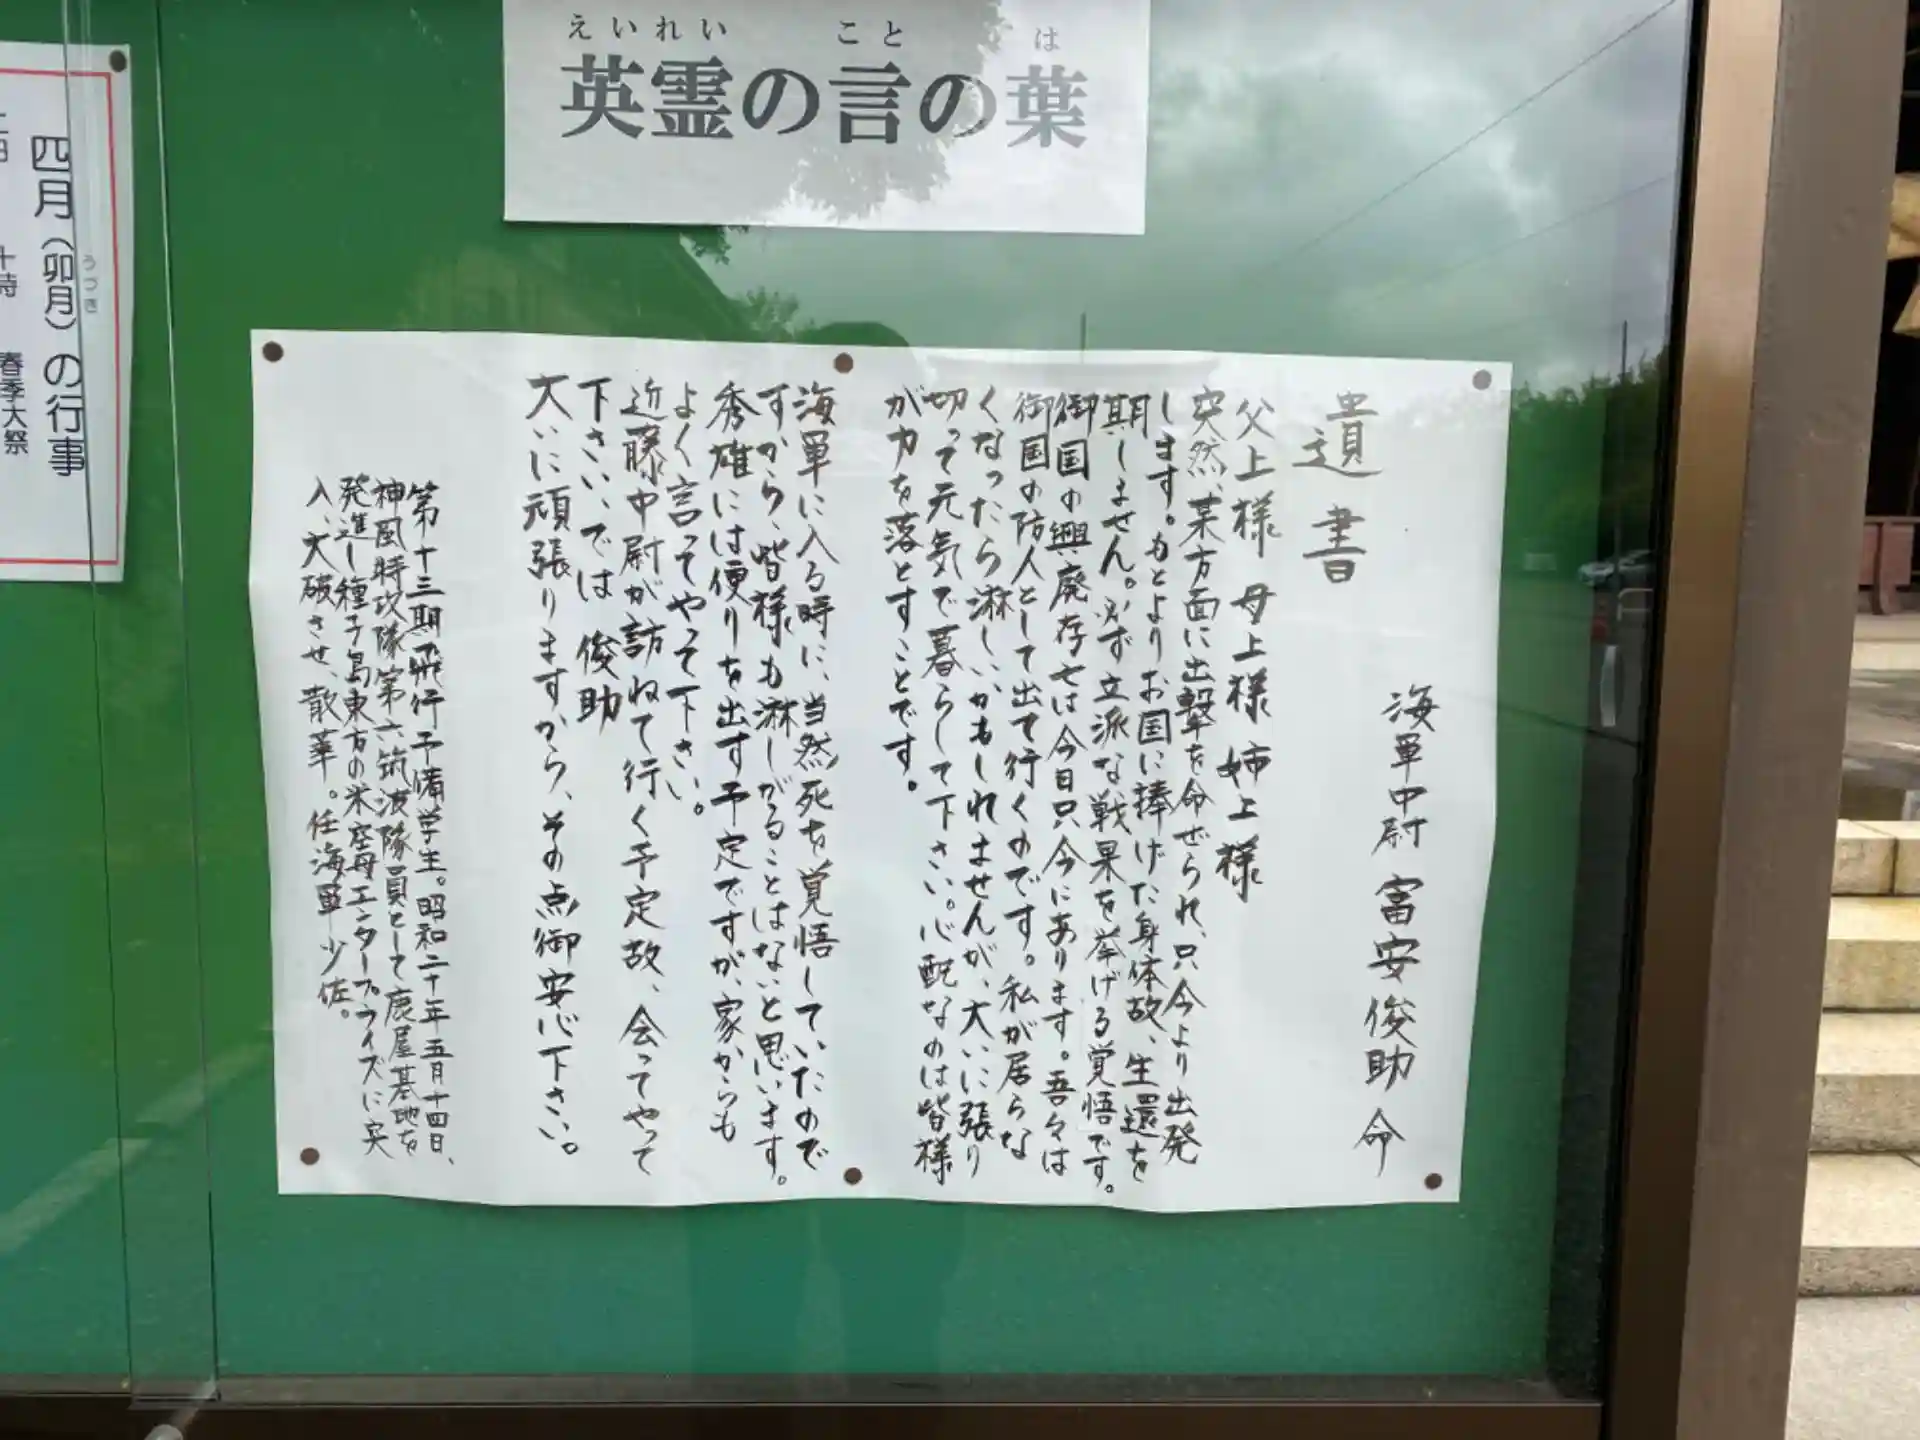 えいれい こと は
英霊の言の葉
遺書
海軍中尉 富安俊助 命
父上様 母上様 姉上様
突然、某方面に出撃を命ぜられ、只今より出発
します。もとよりお国に捧げた身体故、生還を
期しません。必ず立派な戦果を挙げる覚悟です。
御国の興廃存亡は今日只今にあります。吾々は
御国の防人として出て行くのです。私が居らな
くなったら淋しいかもしれませんが、大いに張り
切って元気で暮らして下さい。心配なのは皆様
が力を落とすことです。
海軍に入る時に、当然死を覚悟していたので
すから、皆様も淋しがることはないと思います。
秀雄には便りを出す予定ですが、家からも
よく言ってやって下さい。
近藤中尉が訪ねて行く予定故、会ってやって
下さい、では 俊助
大いに頑張りますから、その点御安心下さい。
第十三期飛行予備学生。昭和二十年五月十四日、
神風特攻隊第六筑波隊員として鹿屋基地を
発進し種子島東方の米空母エンタープライズに突
入、大破させ、散華。任海軍少佐。
うづき
四月(卯月)の行事
十時 春季大祭